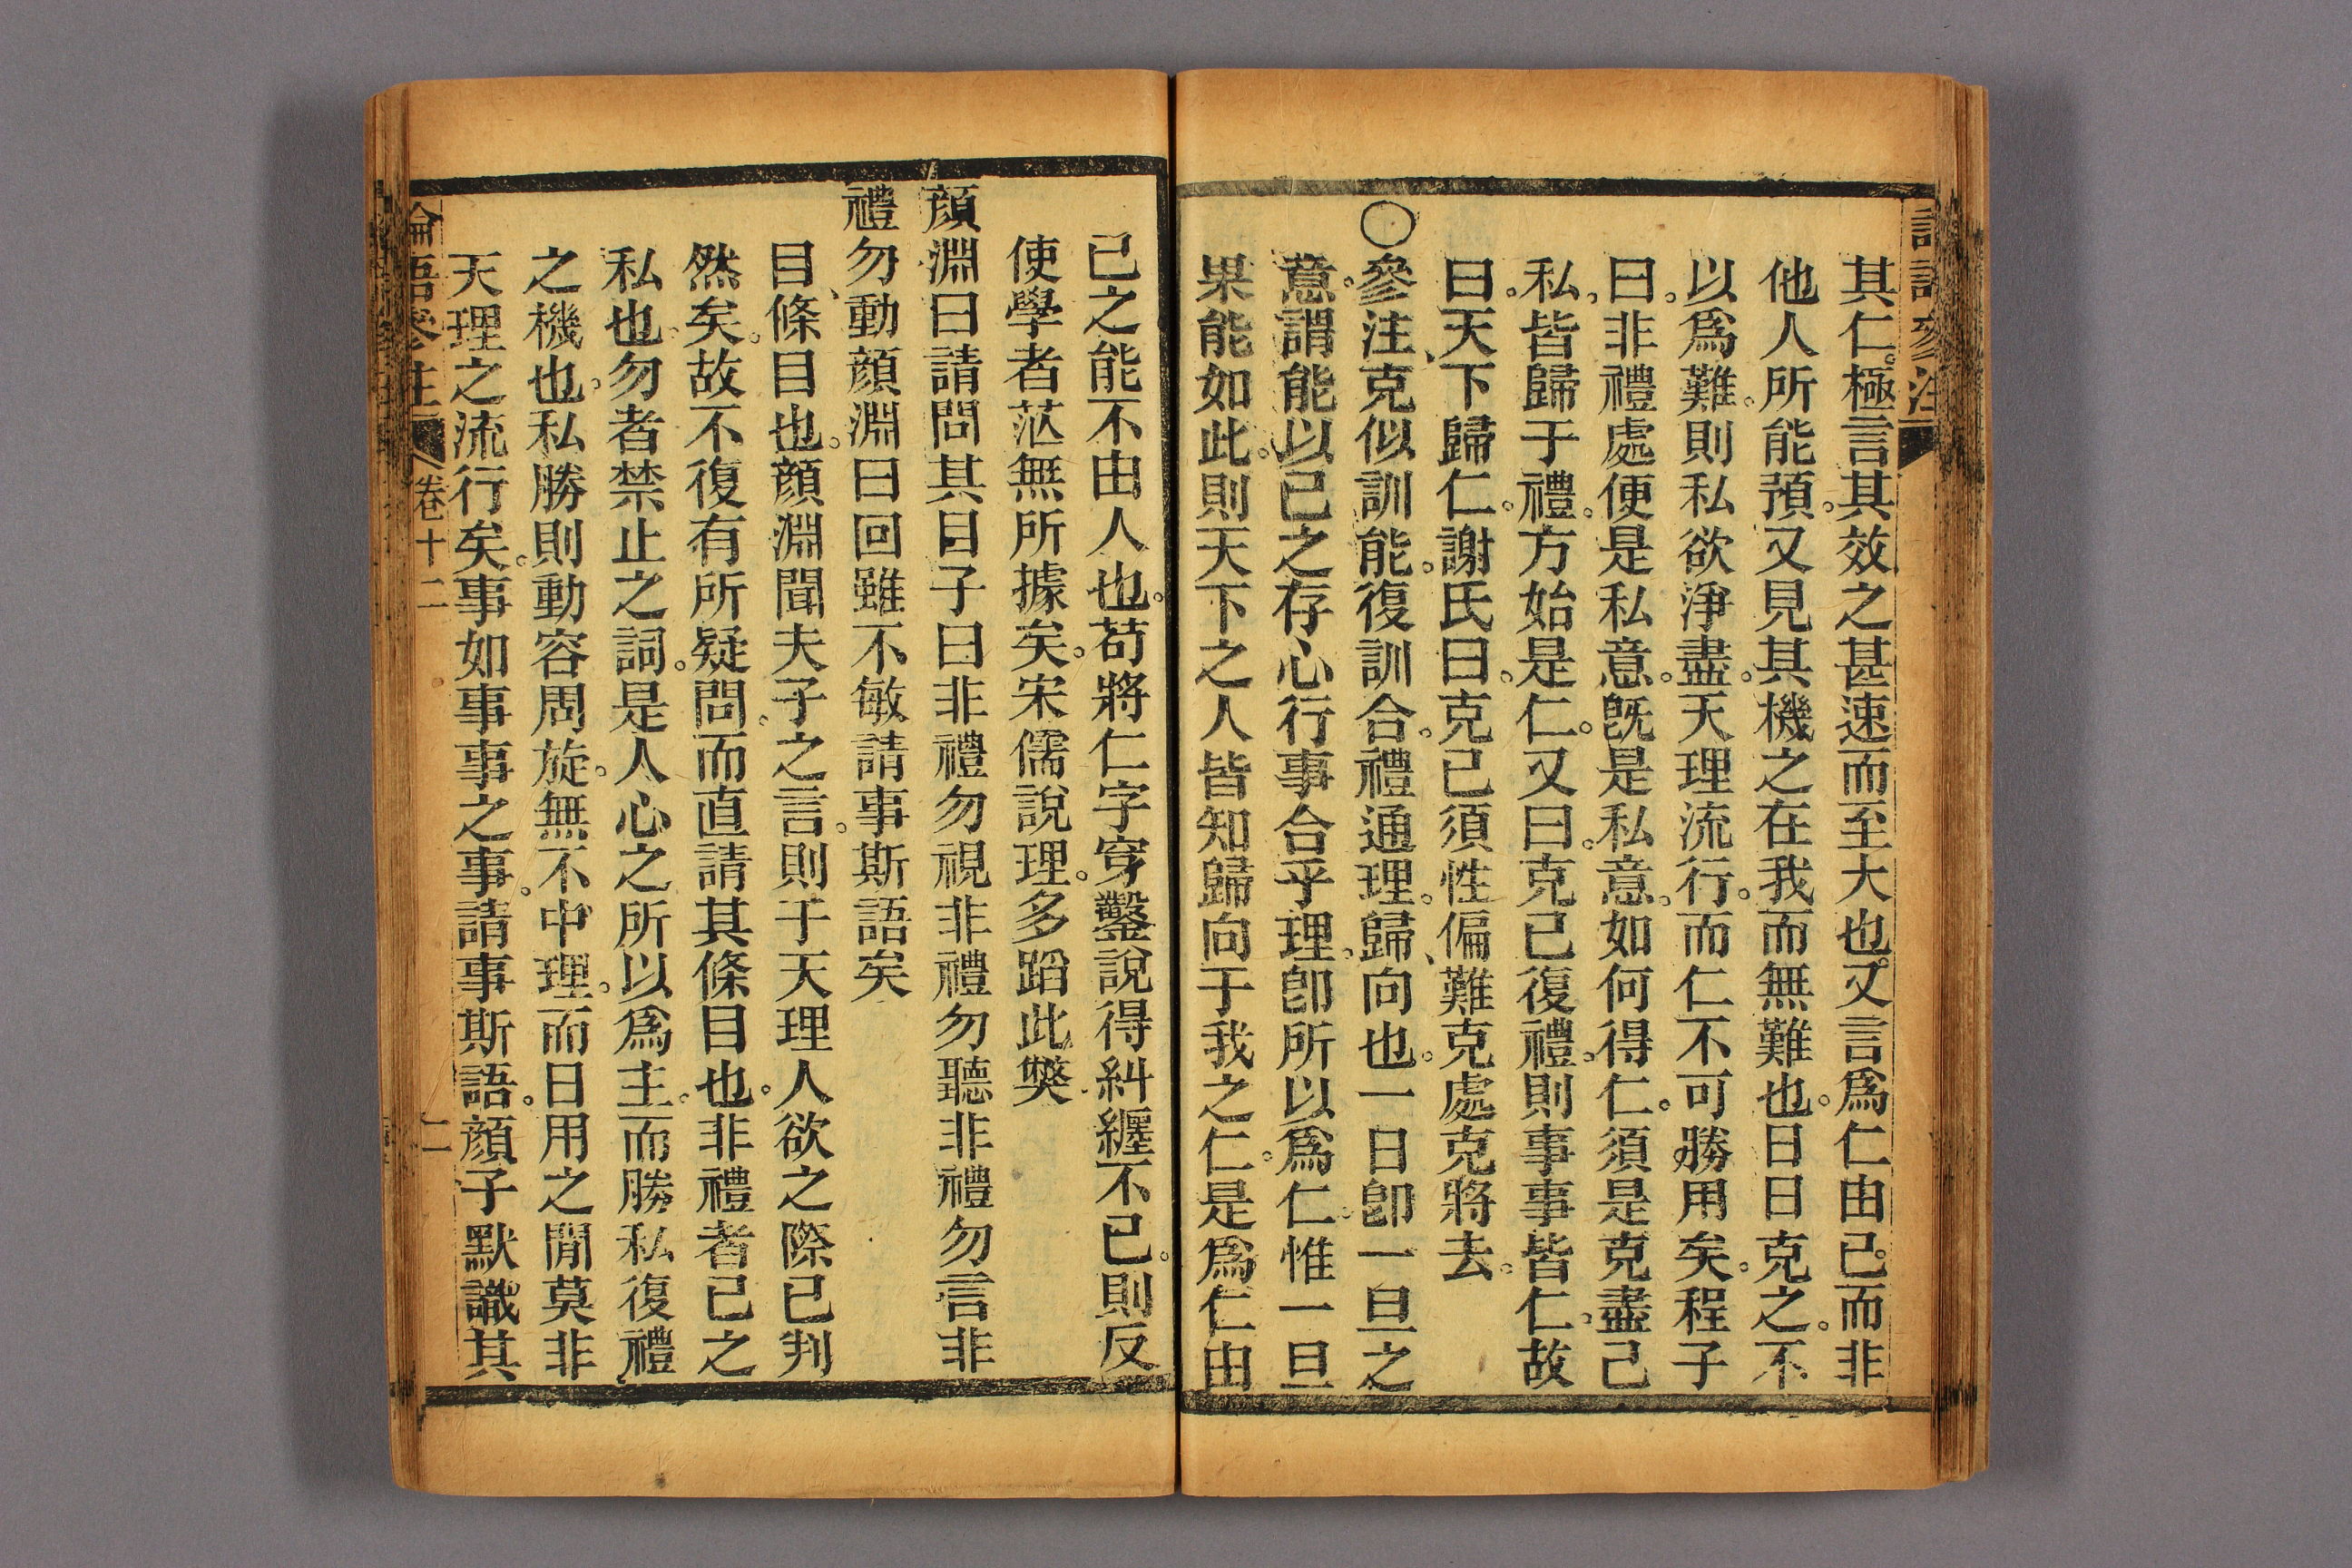 其仁。極言其效之甚速而至大也。又言爲仁由己。而非
他人所能預。又見其機之在我而無難也。日日克之。不
以爲難。則私欲淨盡。天理流行。而仁不可勝用矣。程子
曰。非禮處便是私意。旣是私意。如何得仁。須是克盡己
私。皆歸于禮。方始是仁。又曰。克己復禮。則事事皆仁。故
曰。天下歸仁。謝氏曰。克己須性偏難克處克將去。
〇參注、克似訓能。復訓合。禮通理。歸、向也。一日卽一旦之
意。謂能以己之存心行事合乎理。卽所以爲仁。惟一旦
果能如此。則天下之人皆知歸向于我之仁。是爲仁由
己之能不由人也。苟將仁字穿鑿說得糾纏不已。則反
使學者茫無所據矣。宋儒說理。多蹈此獘
顔淵曰請問其目子曰非禮勿視非禮勿聽非禮勿言非
禮勿動顔淵曰回雖不敏請事斯語矣
目、條目也。顔淵聞夫子之言。則于天理人欲之際已判
然矣。故不復有所疑問。而直請其條目也。非禮者己之
私也。勿者禁止之詞。是人心之所以爲主。而勝私復禮
之機也。私勝則動容周旋。無不中理。而日用之閒莫非
天理之流行矣。事如事事之事。請事斯語。顔子默識其
論語參注 卷十二 二